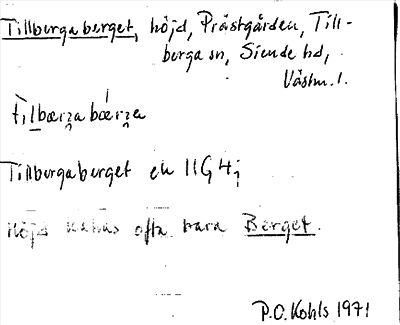 Tillbergaberget, höjd, Prästgården, Till-
berga sn, Siende hd,
Västm. l.
Tillbergaberget ek 11G4j
Höjd kallas ofta bara Berget.
P.O. Kohls 1971